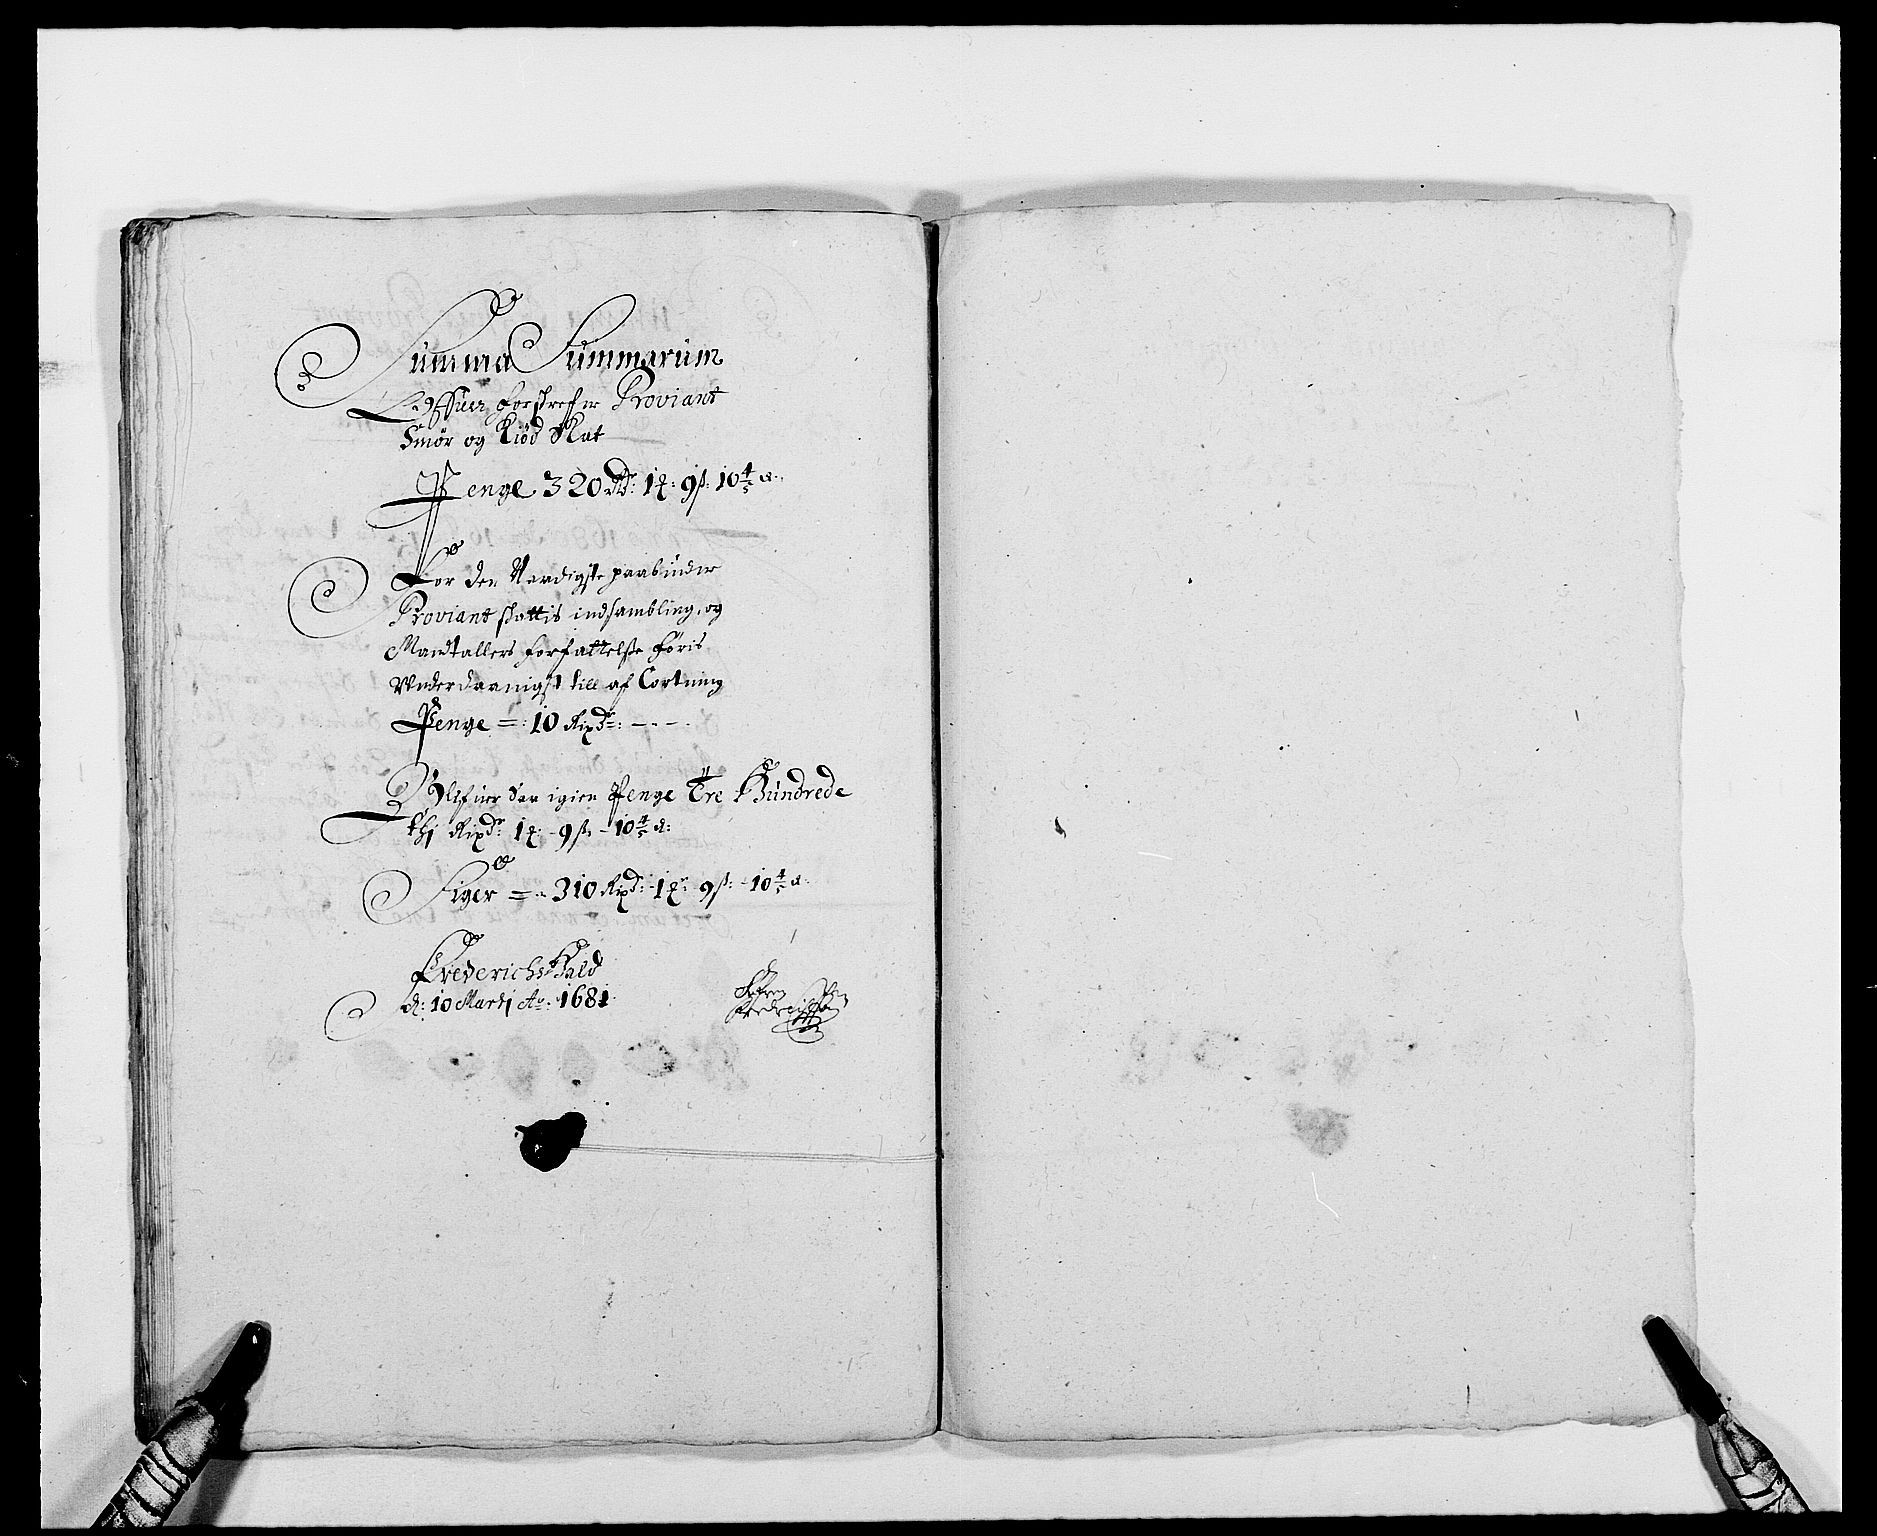 Summa Summarum
forskrefne Proviant
Smör og Kiöd Skat
Penge 320 Rdr: 1 ℔: 9 ß: 10 4/5 ₰:
For den Naadigste paabuder
Proviant skattis indsambling, og
Mandtallers forfattelße föris
Vnderdaanigst till af Cortning
Penge =: 10 Rixdr: - - -
Blifuer saa igien Penge Tre Hundrede
thj Rixdr: 1 ℔: - 9 ß: - 10 4/5 ₰:
Siger = 310 Rixdr: - 1 ℔: 9 ß: - 10 4/5 ₰:
Frederichs Hald
d: 10 Martj Ao: 1681